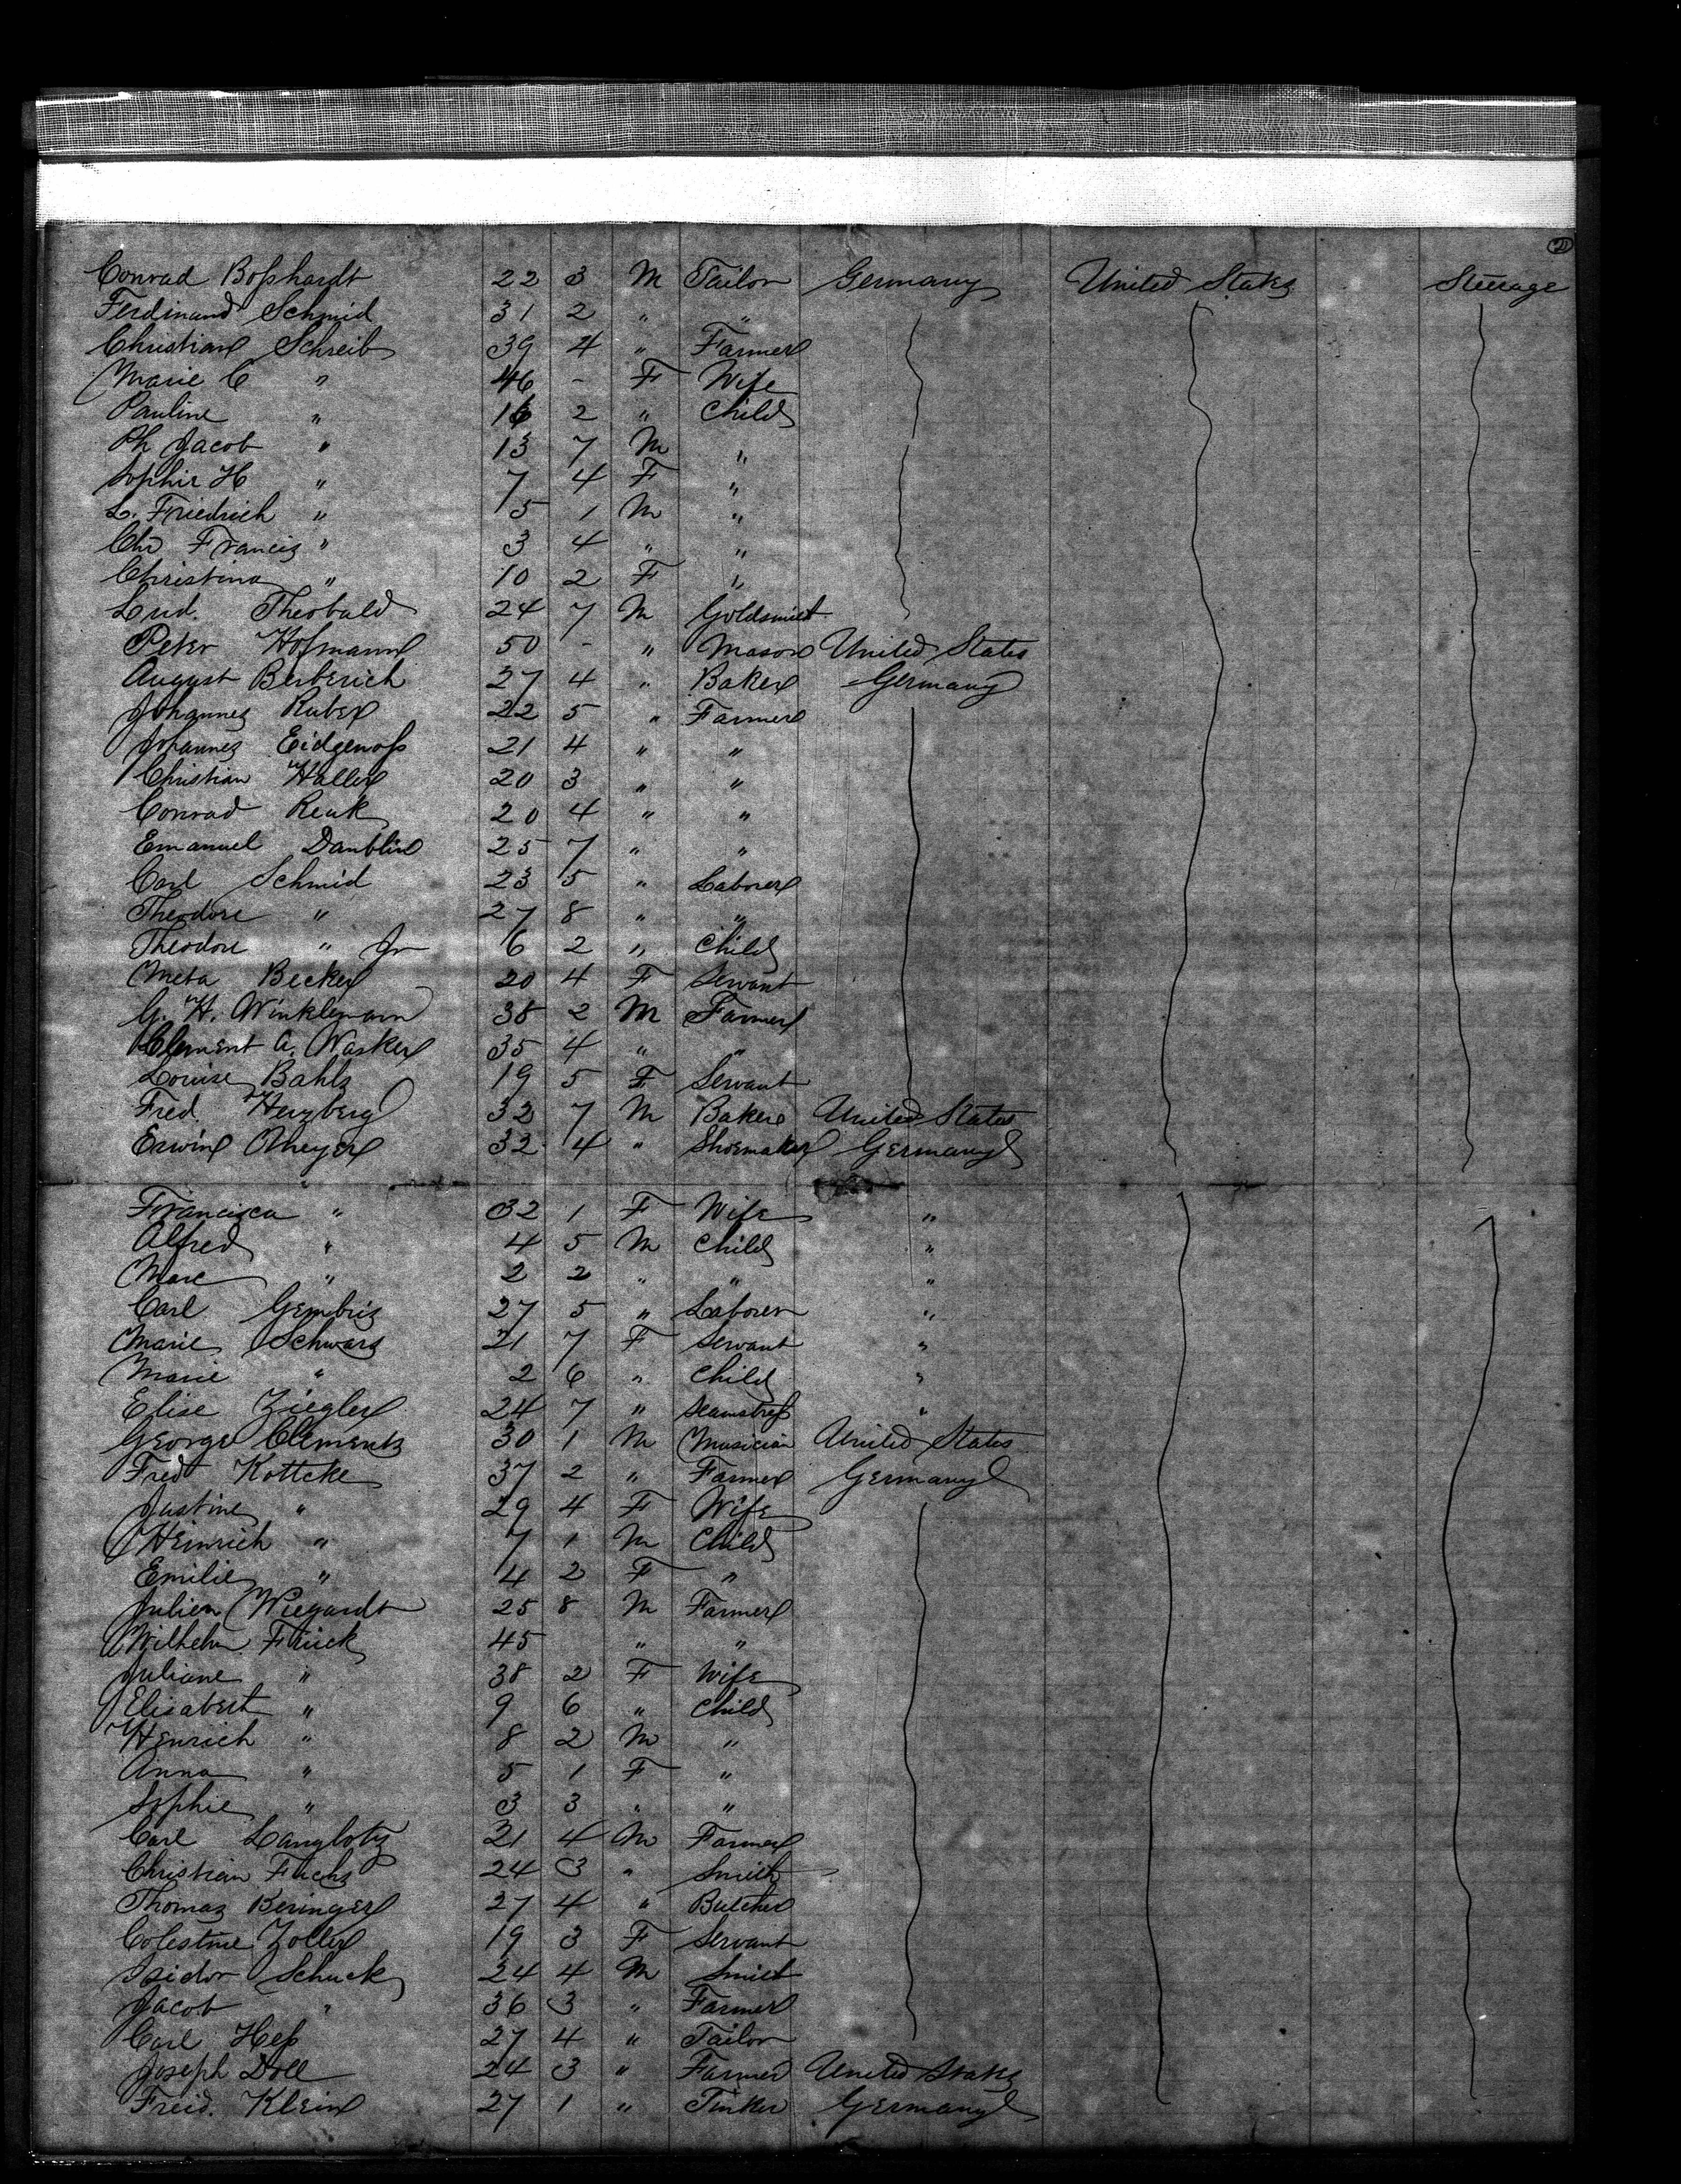 2
Conrad Boßhardt 22 3 M Tailor Germany United States Steerage
Ferdinand Schmid 31 2 " "
Christian Schreib 39 4 " Farmer
Marie C " 46 - F Wife
Pauline " 16 2 " Child
Ph Jacob " 13 7 M "
Sophie H " 7 4 F "
L. Friedrich " 5 1 M "
Chr Francis " 3 4 " "
Christina " 10 2 F "
Lud. Theobald 24 7 M Goldsmith
Peter Hofmann 50 - " Mason United States
August Berberich 27 4 " Baker Germany
Johannes Ruber 22 5 " Farmer
Johannes Eidgenoß 21 4 " "
Christian Haller 20 3 " "
Conrad 20 4 " "
Emanuel 25 7 " "
Carl Schmid 23 5 " Laborer
Theodore " 27 8 " "
Theodore " Jr 6 2 " Child
Meta Becker 20 4 F Servant
G. H. Winklemann 38 2 M Farmer
Clement A. Wasker 35 4 " "
Louise Bahls 19 5 F Servant
Fred. Herzberg 32 7 M Baker United States
Erwin 32 4 " Shoemaker Germany
Francisca " 32 1 F Wife "
Alfred " 4 5 M Child "
Marc " 2 2 " " "
Carl 27 5 " Laborer "
Marie Schwarz 21 7 F Servant "
Marie " 2 6 " Child "
Elise Ziegler 24 7 " Seamstreß "
George Clements 30 1 M Musician United States
Fred Kottcke 37 2 " Farmer Germany
Justine " 29 4 F Wife
Heinrich " 7 1 M Child
Emilie " 4 2 F "
Julien Wiegardt 25 8 M Farmer
Wilhelm Flück 45 " "
Juliane " 38 2 F Wife
Elisabeth " 9 6 " Child
Henrich " 8 2 M "
Anna " 5 1 F "
Sophie " 3 3 " "
Carl Langlotz 21 4 M Farmer
Christian Fuchs 24 3 " Smith
Thomas Beringer 27 4 " Butcher
Colestine Zoller 19 3 F Servant
Isidor Schuck 24 4 M Smith
Jacob " 36 3 " Farmer
Carl Heß 27 4 " Tailor
Joseph Doll 24 3 " Farmer United States
Freid. Klein 27 1 " Tinker Germany